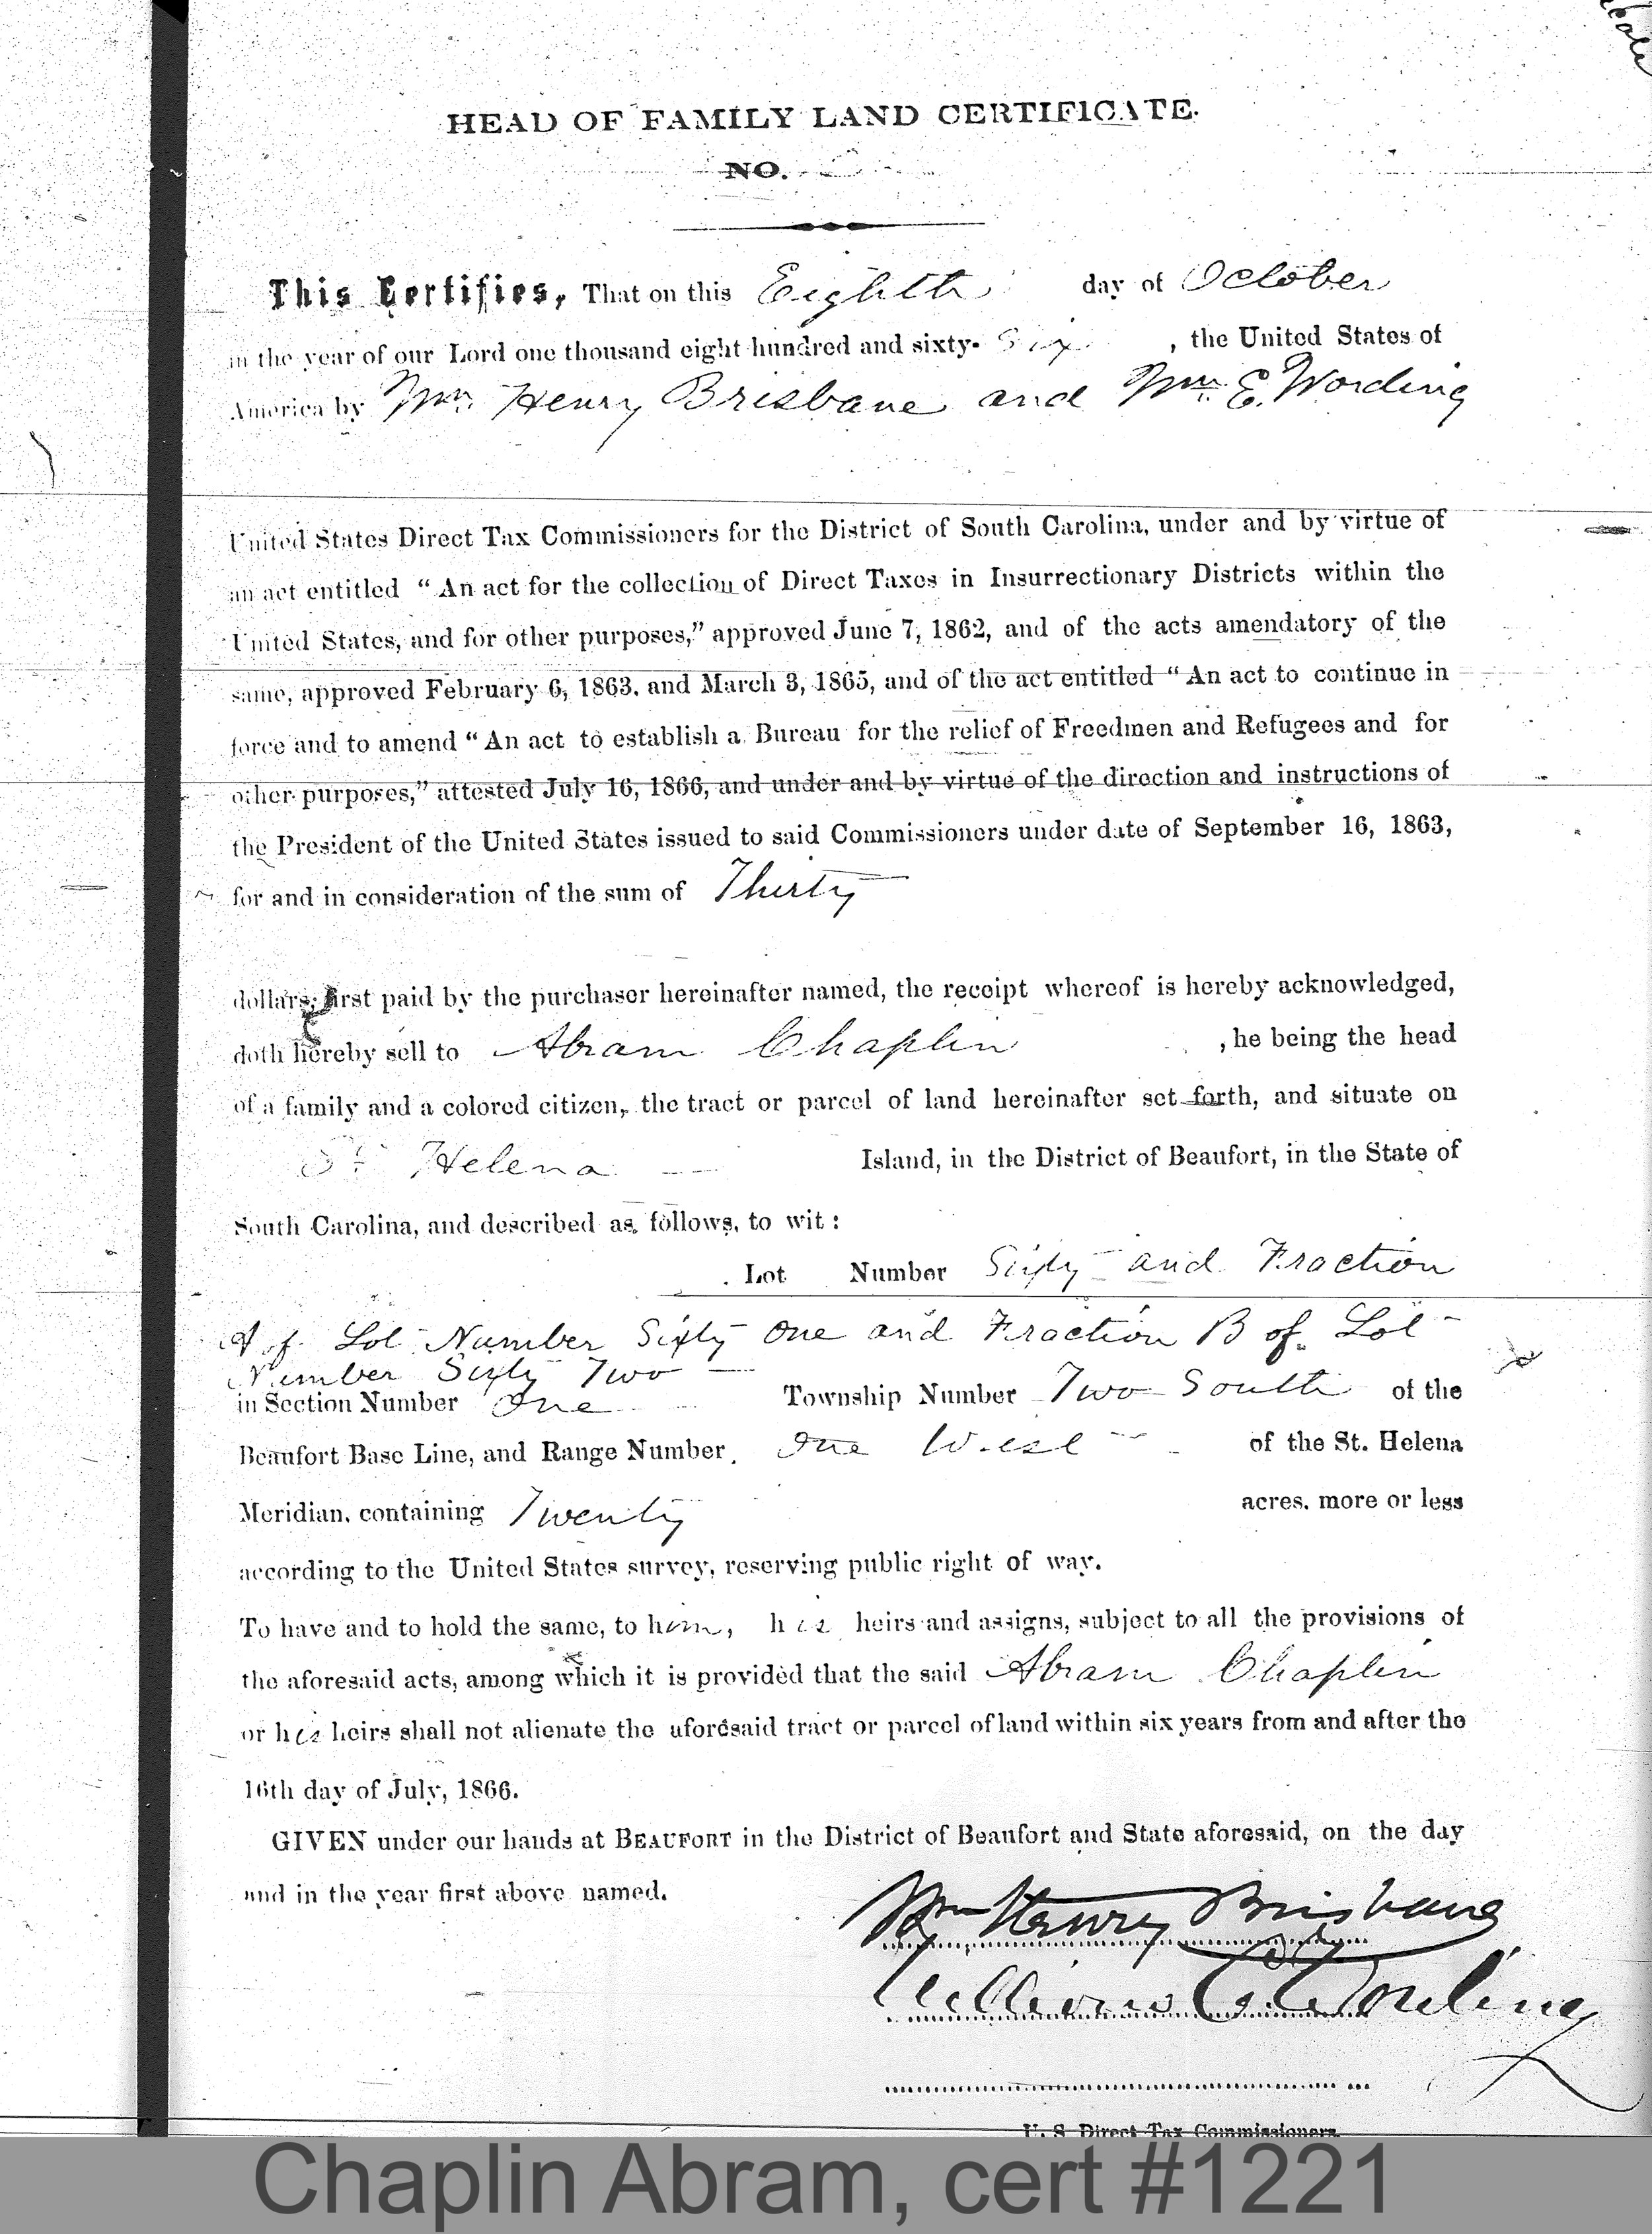 HEAD OF FAMILY LAND CERTIFICATE.
NO.
This Certifies, That on this Eighth day of October
in the year of our Lord one thousand eight hundred and sixty-Six, the United States of
America by Wm. Henry Brisbane and Wm. E. Wording
United States Direct Tax Commissioners for the District of South Carolina, under and by virtue of
an act entitled “An act for the collection of Direct Taxes in Insurrectionary Districts within the
United States, and for other purposes,” approved June 7, 1862, and of the acts amendatory of the
same, approved February 6, 1863, and March 3, 1865, and of the act entitled “An act to continue in
force and to amend “An act to establish a Bureau for the relief of Freedmen and Refugees and for
other purposes,” attested July 16, 1866, and under and by virtue of the direction and instructions of
the President of the United States issued to said Commissioners under date of September 16, 1863,
for and in consideration of the sum of Thirty
dollars, first paid by the purchaser hereinafter named, the receipt whereof is hereby acknowledged,
doth hereby sell to Abram Chaplin, he being the head
of a family and a colored citizen, the tract or parcel of land hereinafter set forth, and situate on
St Helena Island, in the District of Beaufort, in the State of
South Carolina, and described as follows, to wit:
Lot Number Sixty and Fraction
A of Lot Number Sixty One and Fraction B of Lot
Number Sixty Two
in Section Number One Township Number Two South of the
Beaufort Base Line, and Range Number One West of the St. Helena
Meridian, containing Twenty acres, more or less
according to the United States survey, reserving public right of way.
To have and to hold the same, to him, his heirs and assigns, subject to all the provisions of
the aforesaid acts, among which it is provided that the said Abram Chaplin
or his heirs shall not alienate the aforesaid tract or parcel of land within six years from and after the
16th day of July, 1866.
GIVEN under our hands at BEAUFORT in the District of Beaufort and State aforesaid, on the day
and in the year first above named.
Wm Henry Brisbane
William E. Wording
U. S Direct Tax Commissioners
Chaplin Abram, cert #1221